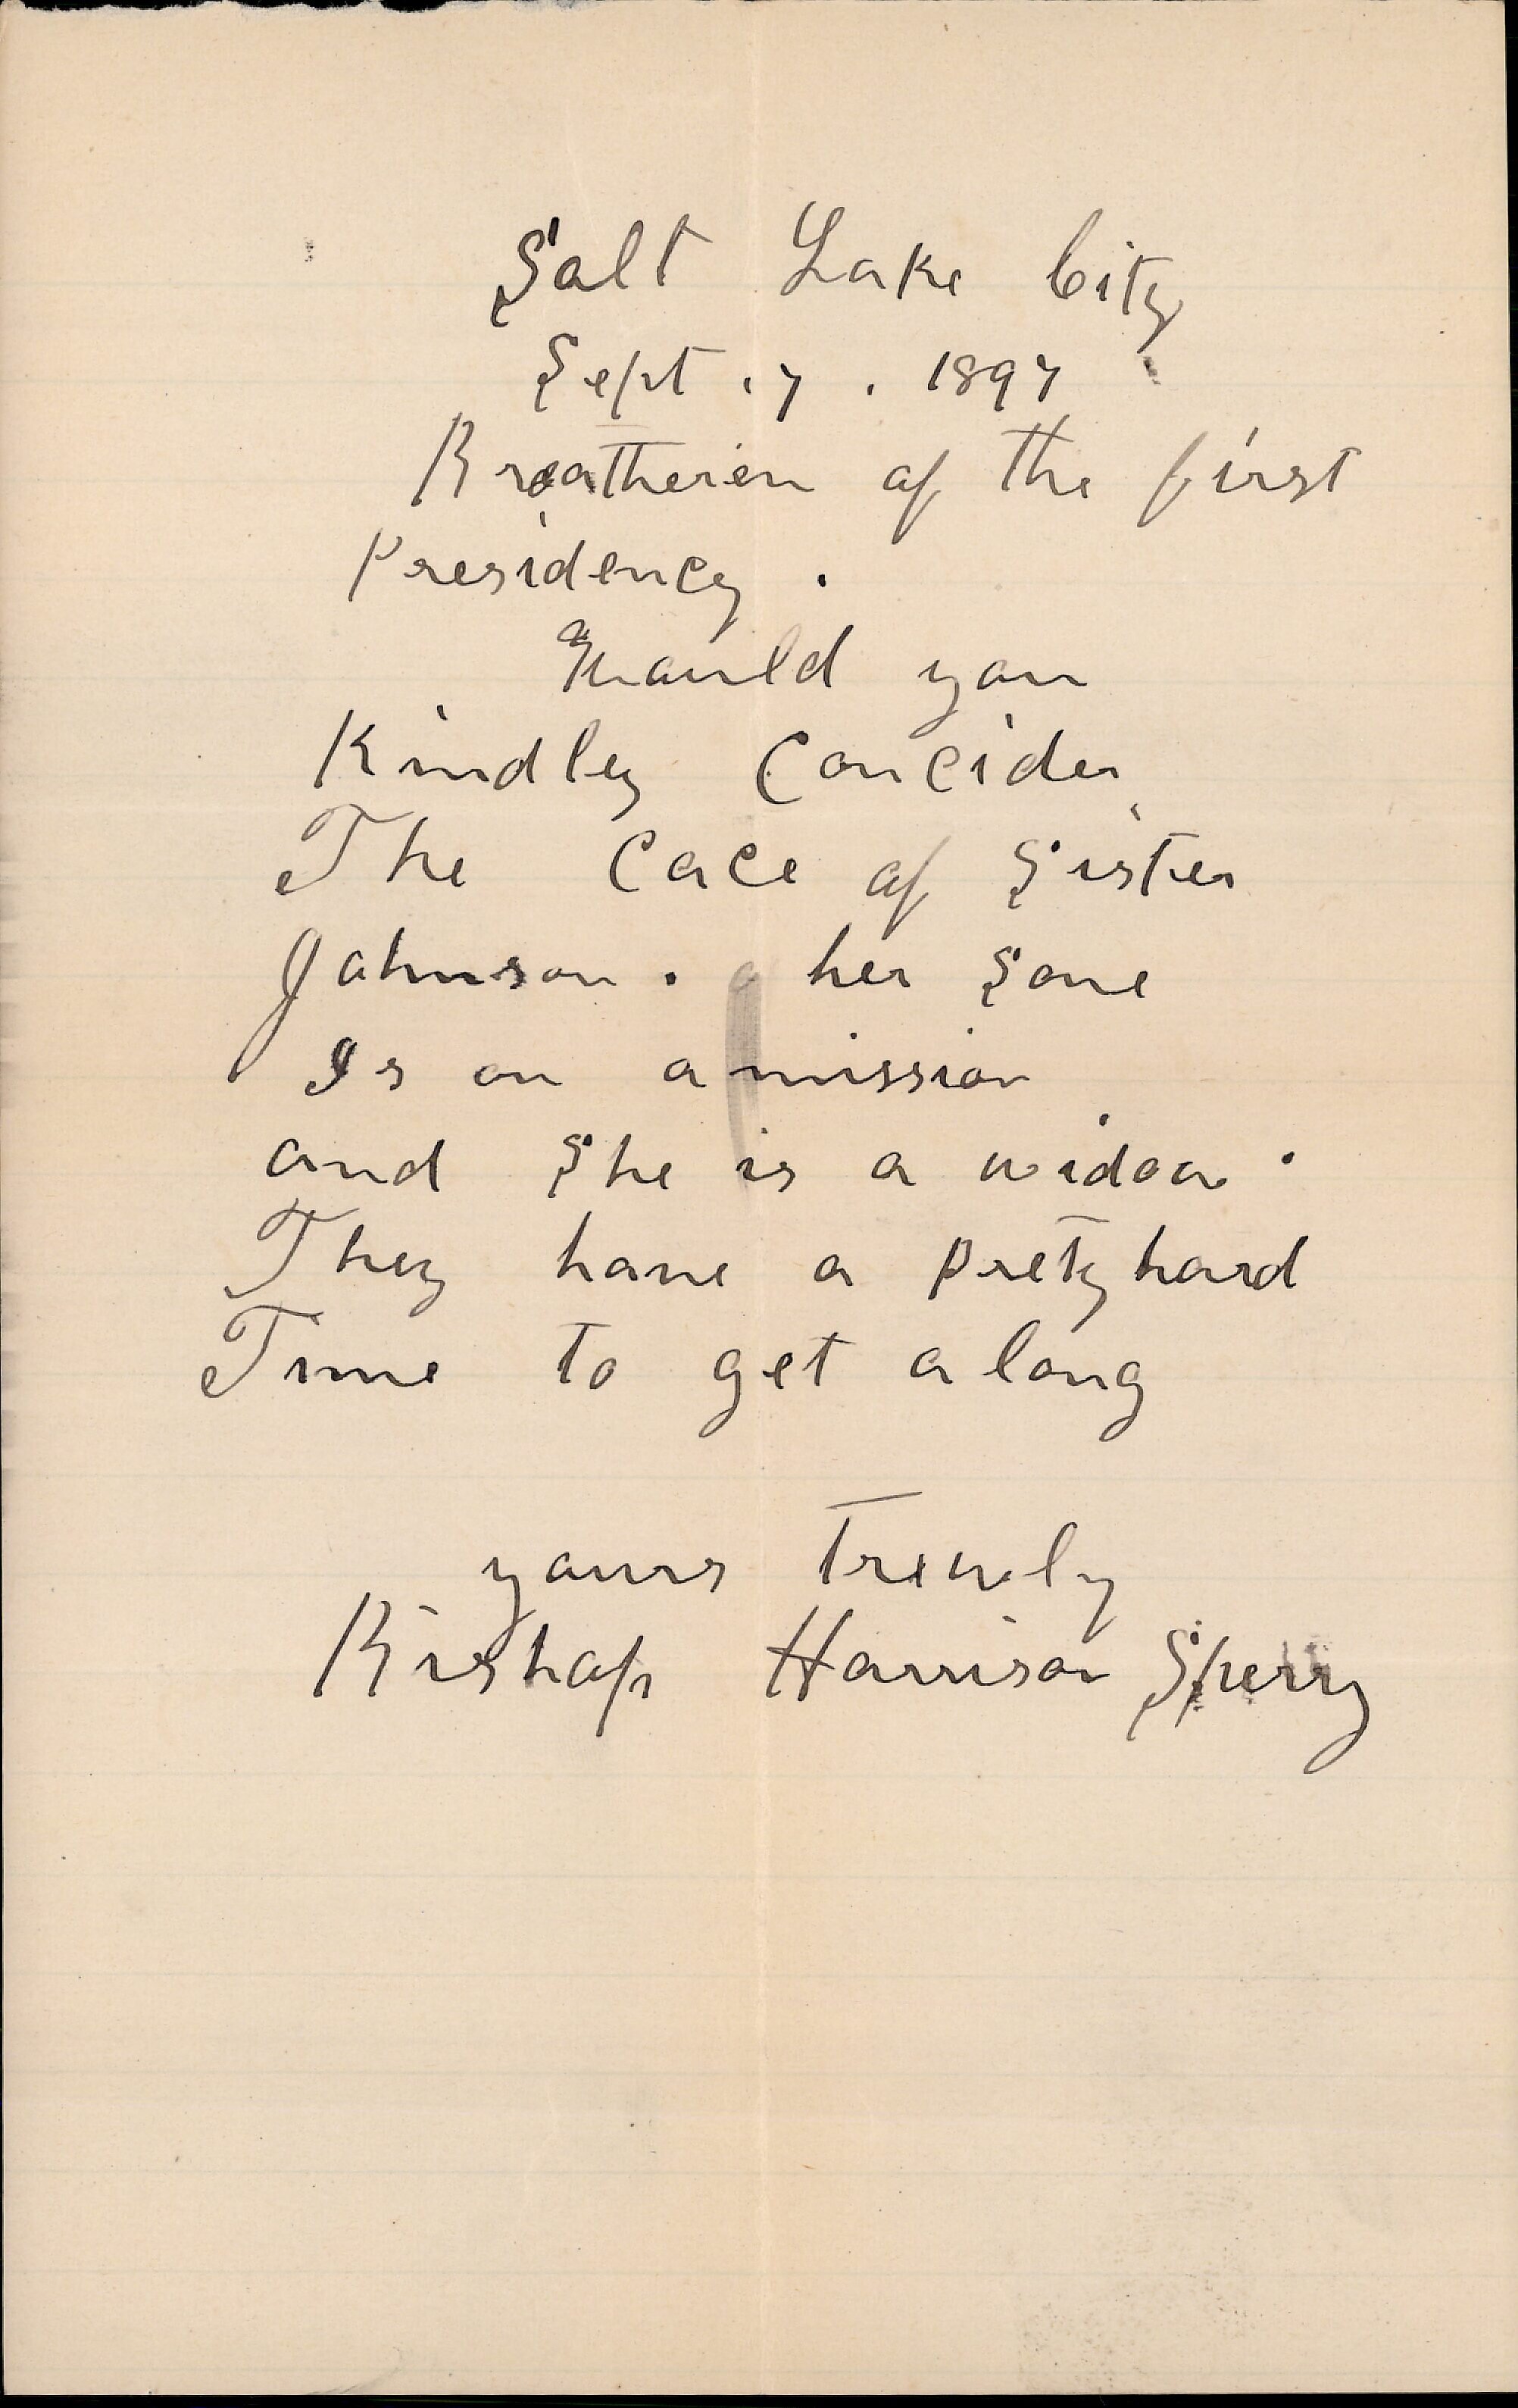 Salt Lake City
Sept . 7 . 1897
Broatheren of the first
Presidency .
Would you
Kindley Concider
The Cace of Sister
Johnson . her Sone
Is on a mission
and She is a widow .
They have a prety hard
Time to get a long
yours Trewly
Bishop Harrison Sperry